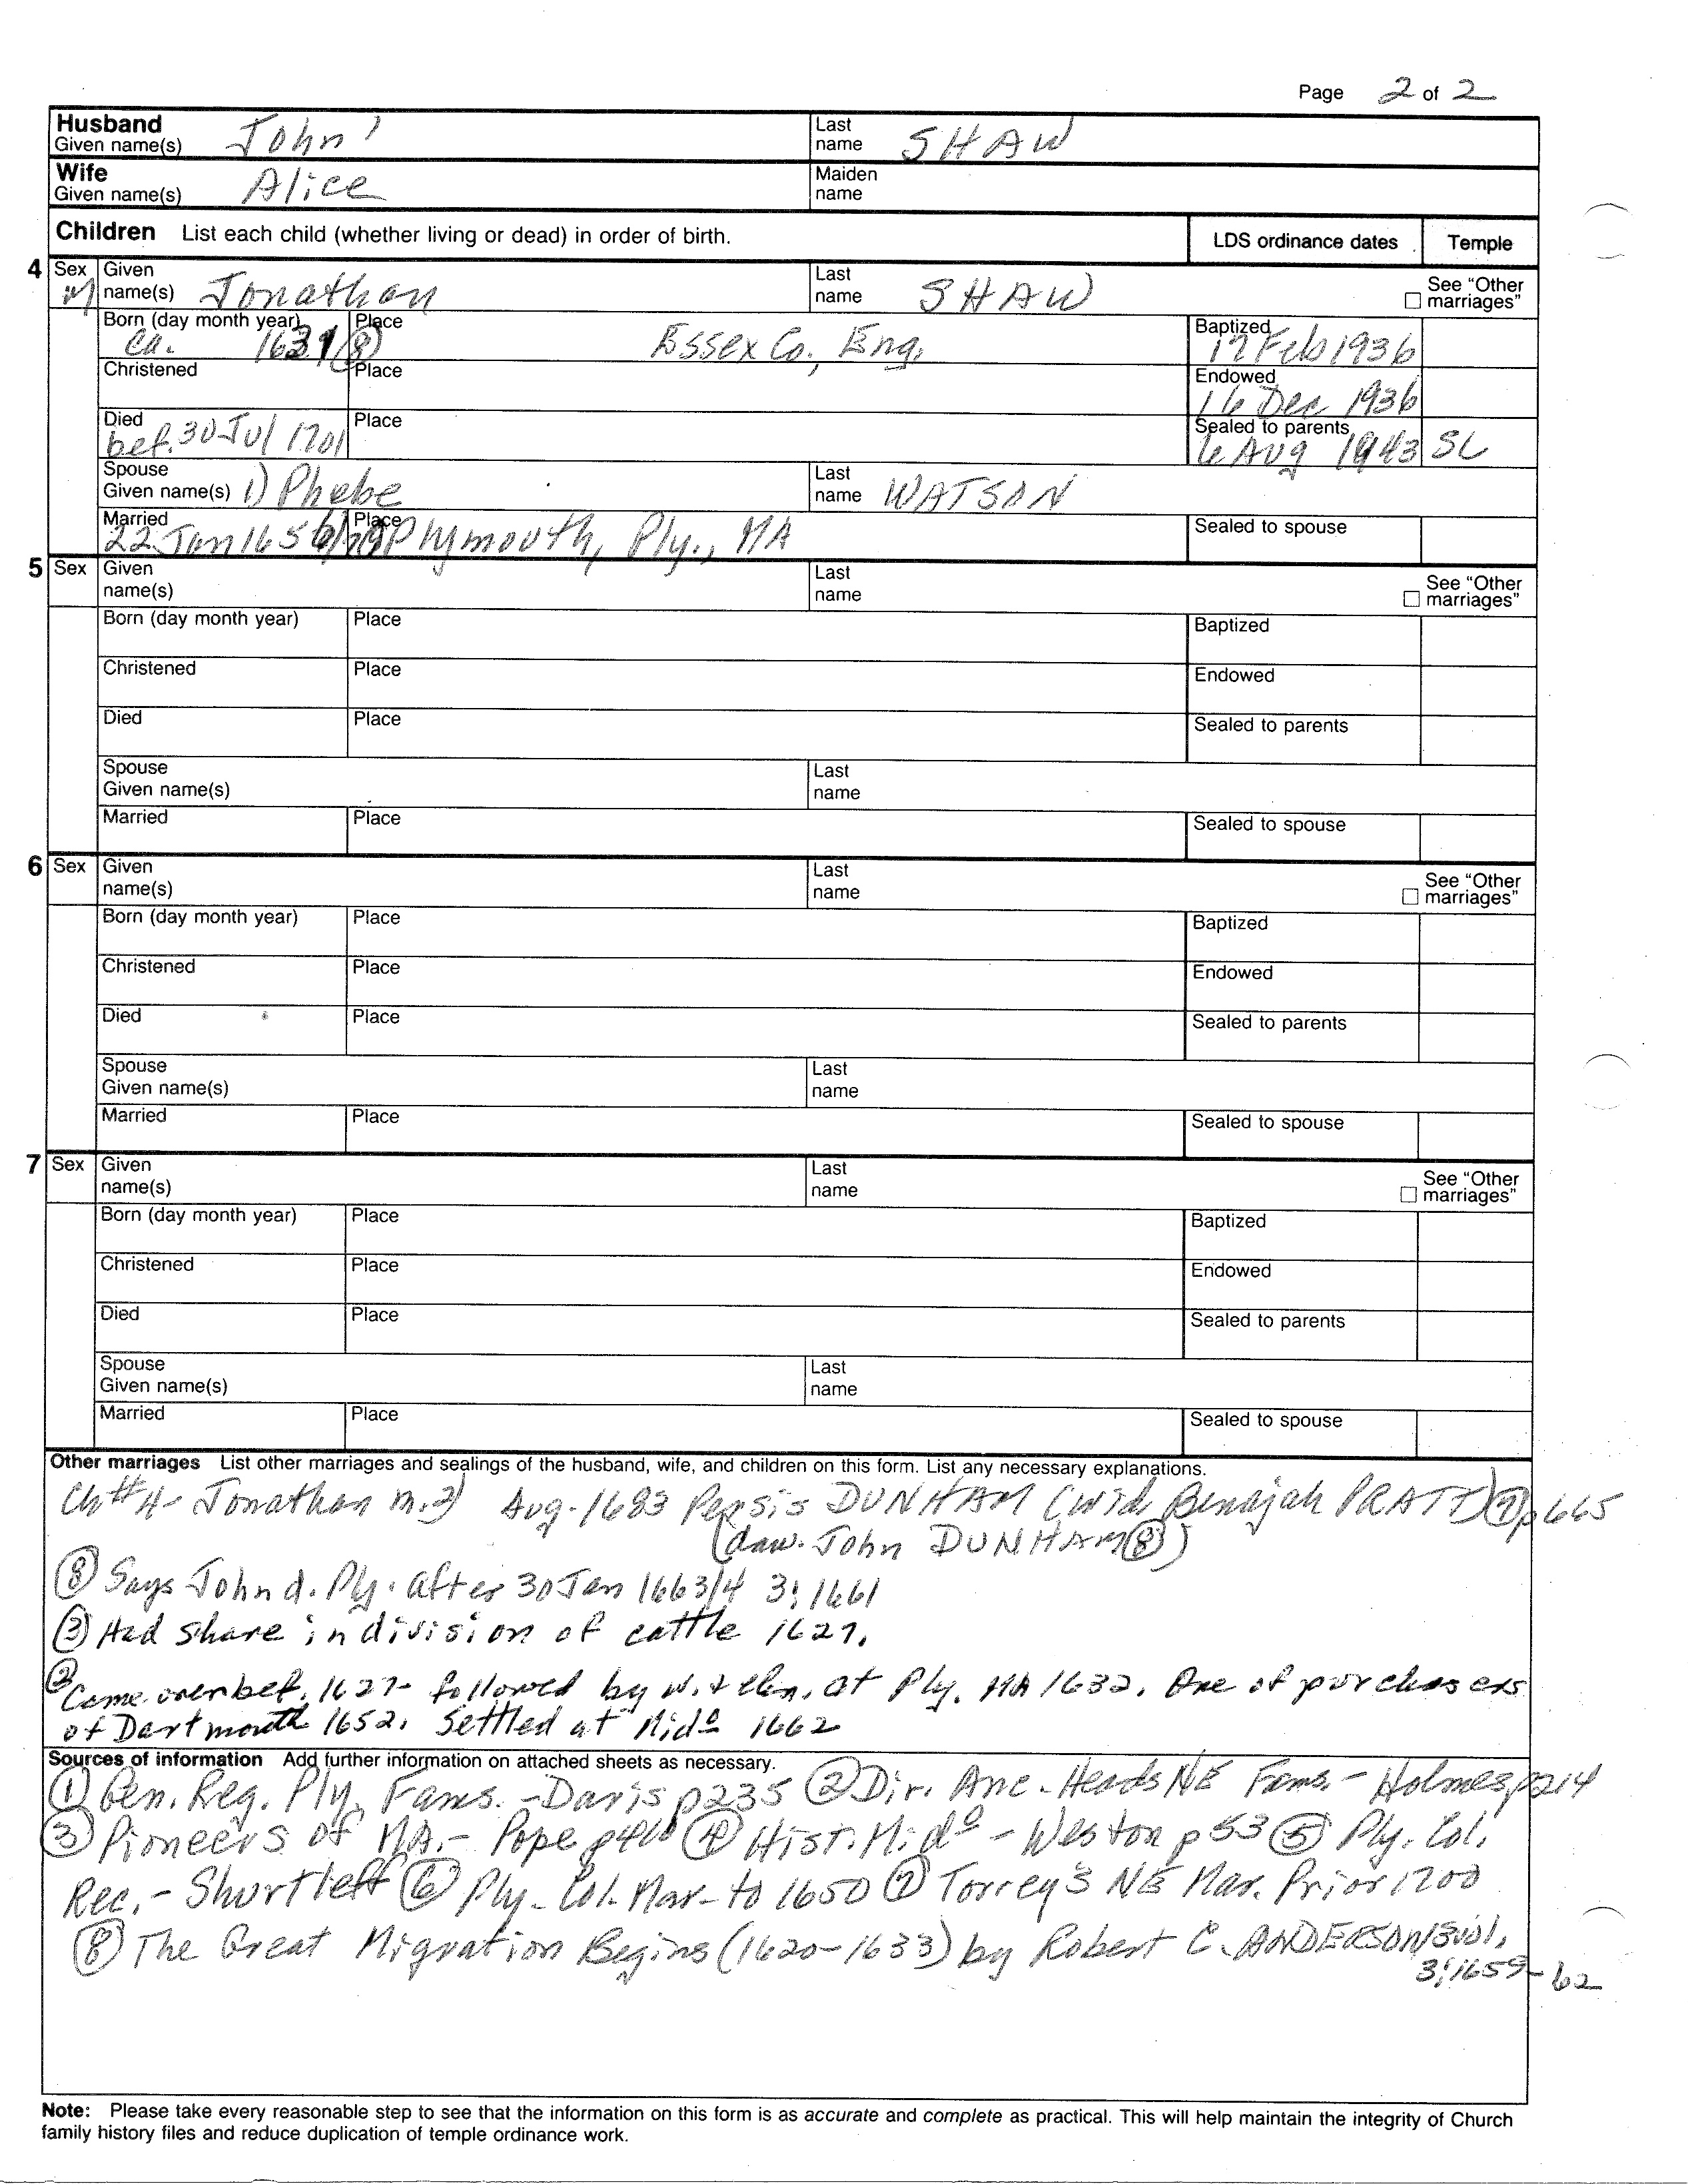 Page 2 of 2
Husband Given name(s) John' Last name SHAW
Wife Given name(s) Alice Maiden name
Children List each child (whether living or dead) in order of birth. LDS ordinance dates Temple
4 Sex M Given name(s) Jonathan Last name SHAW See "Other marriages"
Born (day month year) ca. 1631 (8) Place Essex Co., Eng. Baptized 17 Feb 1936
Christened Place Endowed 16 Dec 1936
Died bef. 30 Jul 1701 Place Sealed to parents 6 Aug 1943 SL
Spouse Given name(s) 1) Phebe Last name WATSON
Married 22 Jan 1656/ Place Plymouth, Ply., MA Sealed to spouse
5 Sex Given name(s) Last name See "Other marriages"
Born (day month year) Place Baptized
Christened Place Endowed
Died Place Sealed to parents
Spouse Given name(s) Last name
Married Place Sealed to spouse
6 Sex Given name(s) Last name See "Other marriages"
Born (day month year) Place Baptized
Christened Place Endowed
Died Place Sealed to parents
Spouse Given name(s) Last name
Married Place Sealed to spouse
7 Sex Given name(s) Last name See "Other marriages"
Born (day month year) Place Baptized
Christened Place Endowed
Died Place Sealed to parents
Spouse Given name(s) Last name
Married Place Sealed to spouse
Other marriages List other marriages and sealings of the husband, wife, and children on this form. List any necessary explanations.
Ch #4 - Jonathan m. 2) Aug. 1683 Persis DUNHAM (wid Benajah PRATT) (7) p 665
(dau. John DUNHAM (8))
(8) Says John d. Ply. after 30 Jan 1663/4 3:1661
(3) Had share in division of cattle 1627.
(2) Came over bef. 1627 - followed by w. & chn. at Ply. MA 1632. One of purchasers
of Dartmouth 1652. Settled at Mido 1662
Sources of information Add further information on attached sheets as necessary.
(1) Gen. Reg. Ply. Fams. - Davis p235 (2) Dir. Anc. Heads NE Fams. - Holmes p214
(3) Pioneers of MA. - Pope p410 (4) Hist. Mido - Weston p 53 (5) Ply. Col.
Rec. - Shurtleff (6) Ply. Col. Mar. to 1650 (7) Torrey's NE Mar. Prior 1700
(8) The Great Migration Begins (1620-1633) by Robert C. ANDERSON 3 vol.
3:1659-62
Note: Please take every reasonable step to see that the information on this form is as accurate and complete as practical. This will help maintain the integrity of Church
family history files and reduce duplication of temple ordinance work.